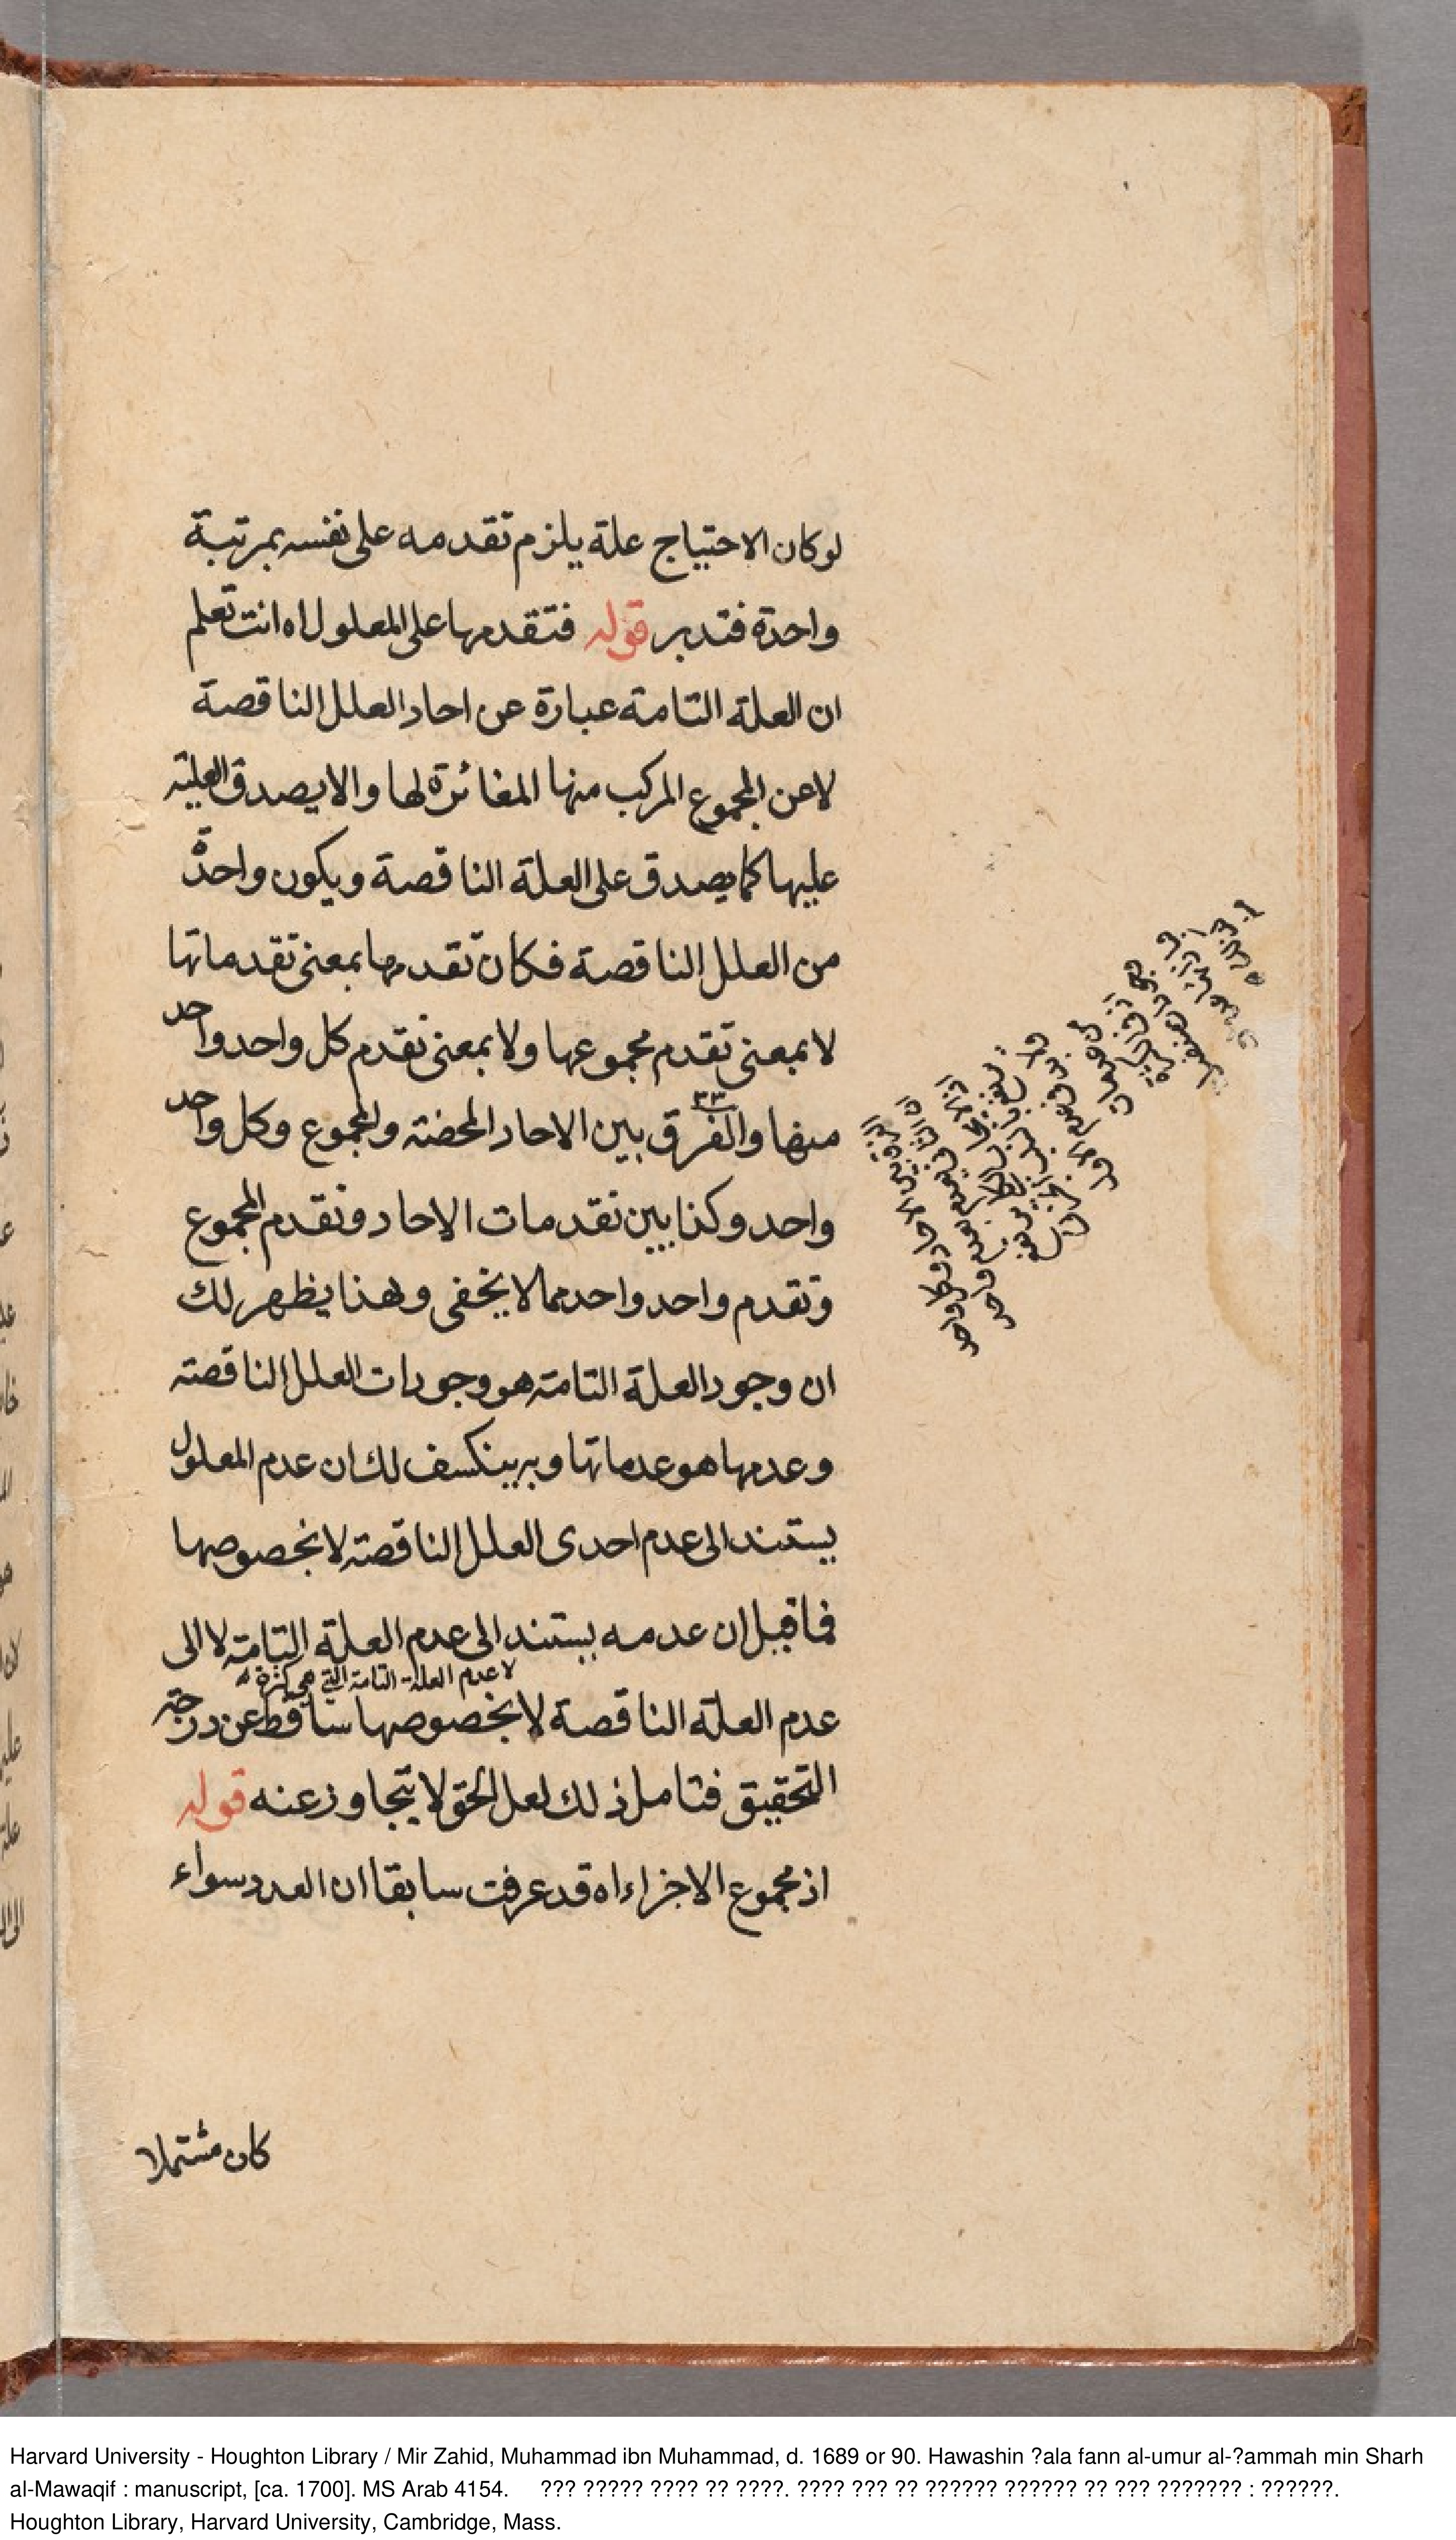 لو كان الاحتياج علة يلزم تقدمه على نفسه بمرتبة
واحدة فتدبر قوله فتقدمها على المعلول اه انت تعلم
ان العلة التامة عبارة عن احاد العلل الناقصة
لا عن المجموع المركب منها المغائرة لها والا يصدق العلية
عليها كما يصدق على العلة الناقصة ويكون واحدة
من العلل الناقصة فكان تقدمها بمعنى تقدماتها
لا بمعنى تقدم مجموعها ولا بمعنى تقدم كل واحد واحد
منها والفرق بين الاحاد المحضة والمجموع وكل واحد
واحد وكذا بين تقدمات الاحاد وتقدم المجموع
وتقدم واحد واحد مما لا يخفى وهذا يظهر لك
ان وجود العلة التامة هو وجودات العلل الناقصة
وعدمها هو عدماتها وبه ينكسف لك ان عدم المعلول
يستند الى عدم احدى العلل الناقصة لا بخصوصها
فما قيل ان عدمه يستند الى عدم العلة التامة لا الى
لا عدم العلة التامة التي هي كثرة
عدم العلة الناقصة لا بخصوصها ساقط عن درجة
التحقيق فتامل ذلك لعل الحق لا يتجاوز عنه قوله
اذ مجموع الاجزاء اه قد عرفت سابقا ان العدد سواء
كان مشتملا
Harvard University - Houghton Library / Mir Zahid, Muhammad ibn Muhammad, d. 1689 or 90. Hawashin ?ala fann al-umur al-?ammah min Sharh
al-Mawaqif : manuscript, [ca. 1700]. MS Arab 4154. ??? ????? ???? ?? ????. ???? ??? ?? ?????? ?????? ?? ??? ??????? : ??????.
Houghton Library, Harvard University, Cambridge, Mass.